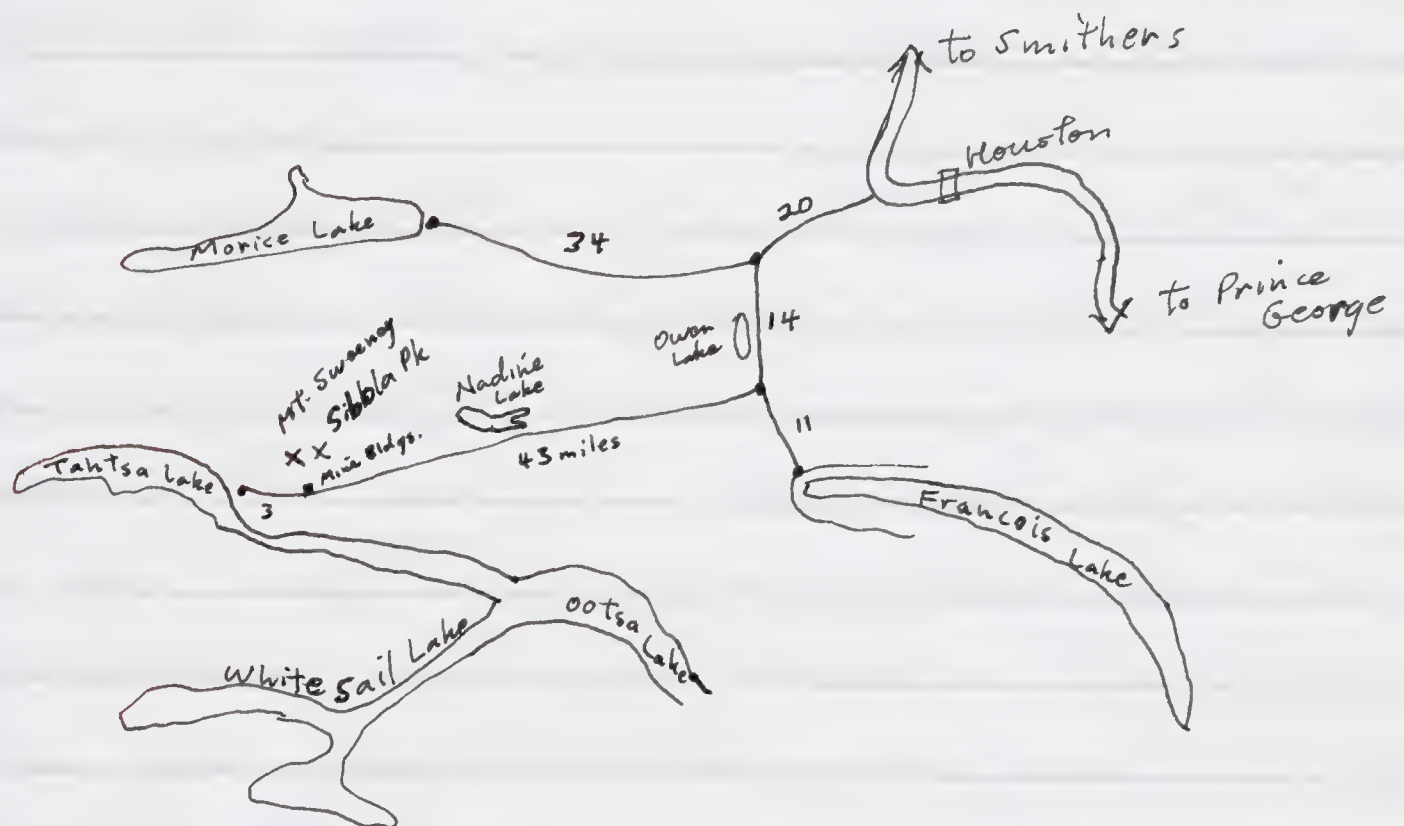 to Smithers
Houston
20
Morice Lake
34
to Prince
George
Owen
Lake
14
Mt. Sweeney
Sibola Pk
Nadine
Lake
x x
Mine Bldgs.
43 miles
11
Tahtsa Lake
3
Francois Lake
Ootsa Lake
White Sail Lake